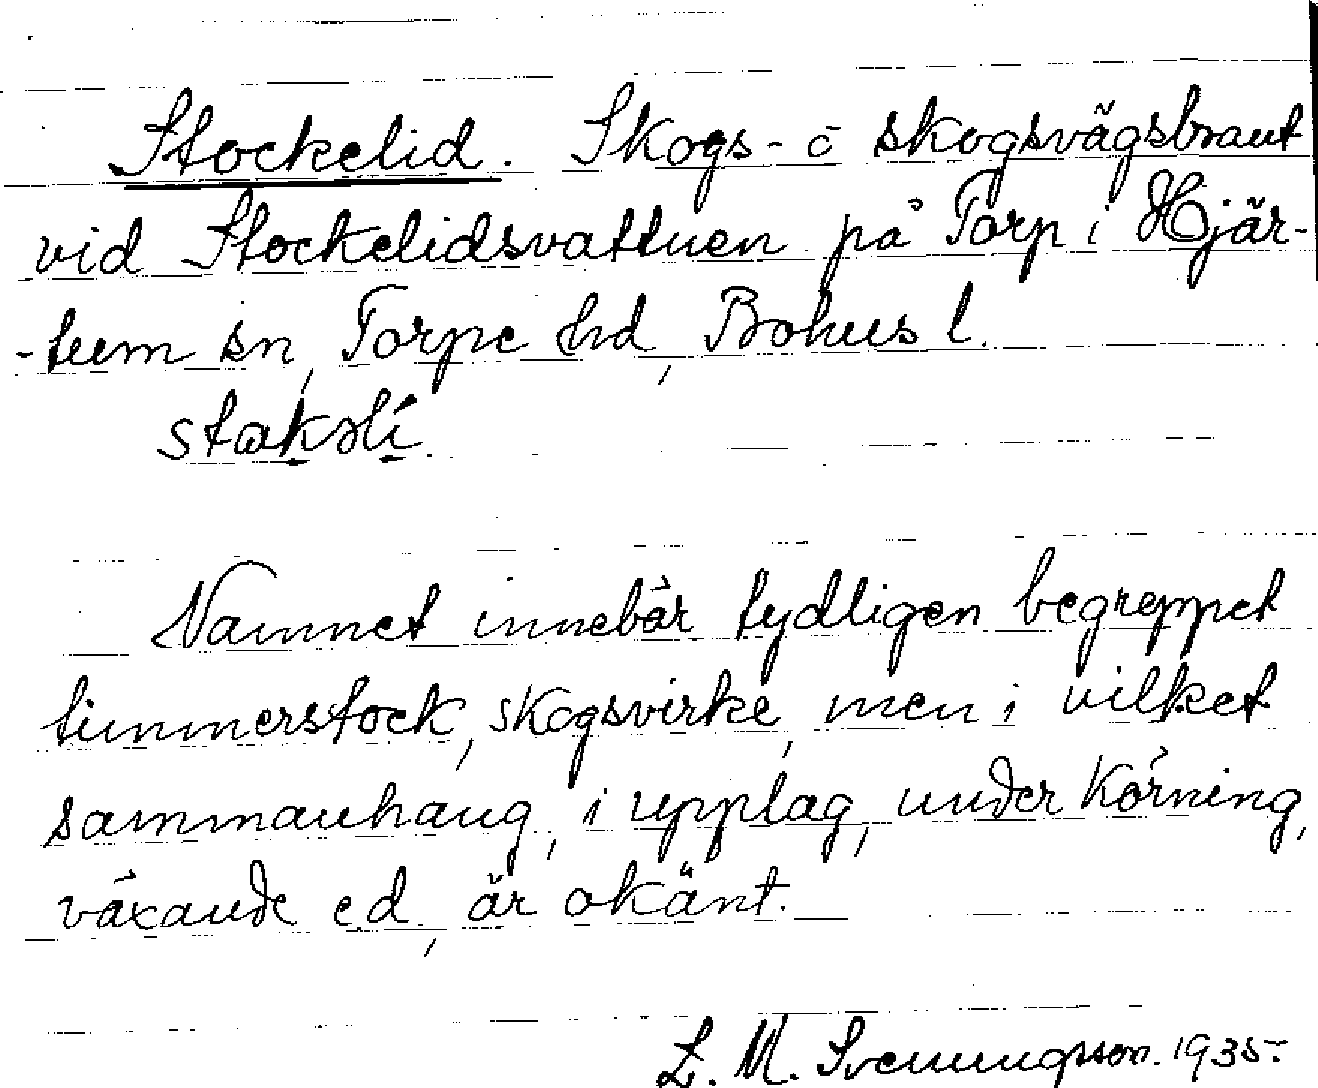 Stockelid. Skogs- o skogsvägsbrant
vid Stockelidsvattnen på Torp i Hjär-
-tum sn, Torpe hd, Bohus l.
Namnet innebär tydligen begreppet
timmerstock, skogsvirke, men i vilket
sammanhang, i upplag, under körning,
växande ed, är okänt.
L. M. Svenungsson. 1935.